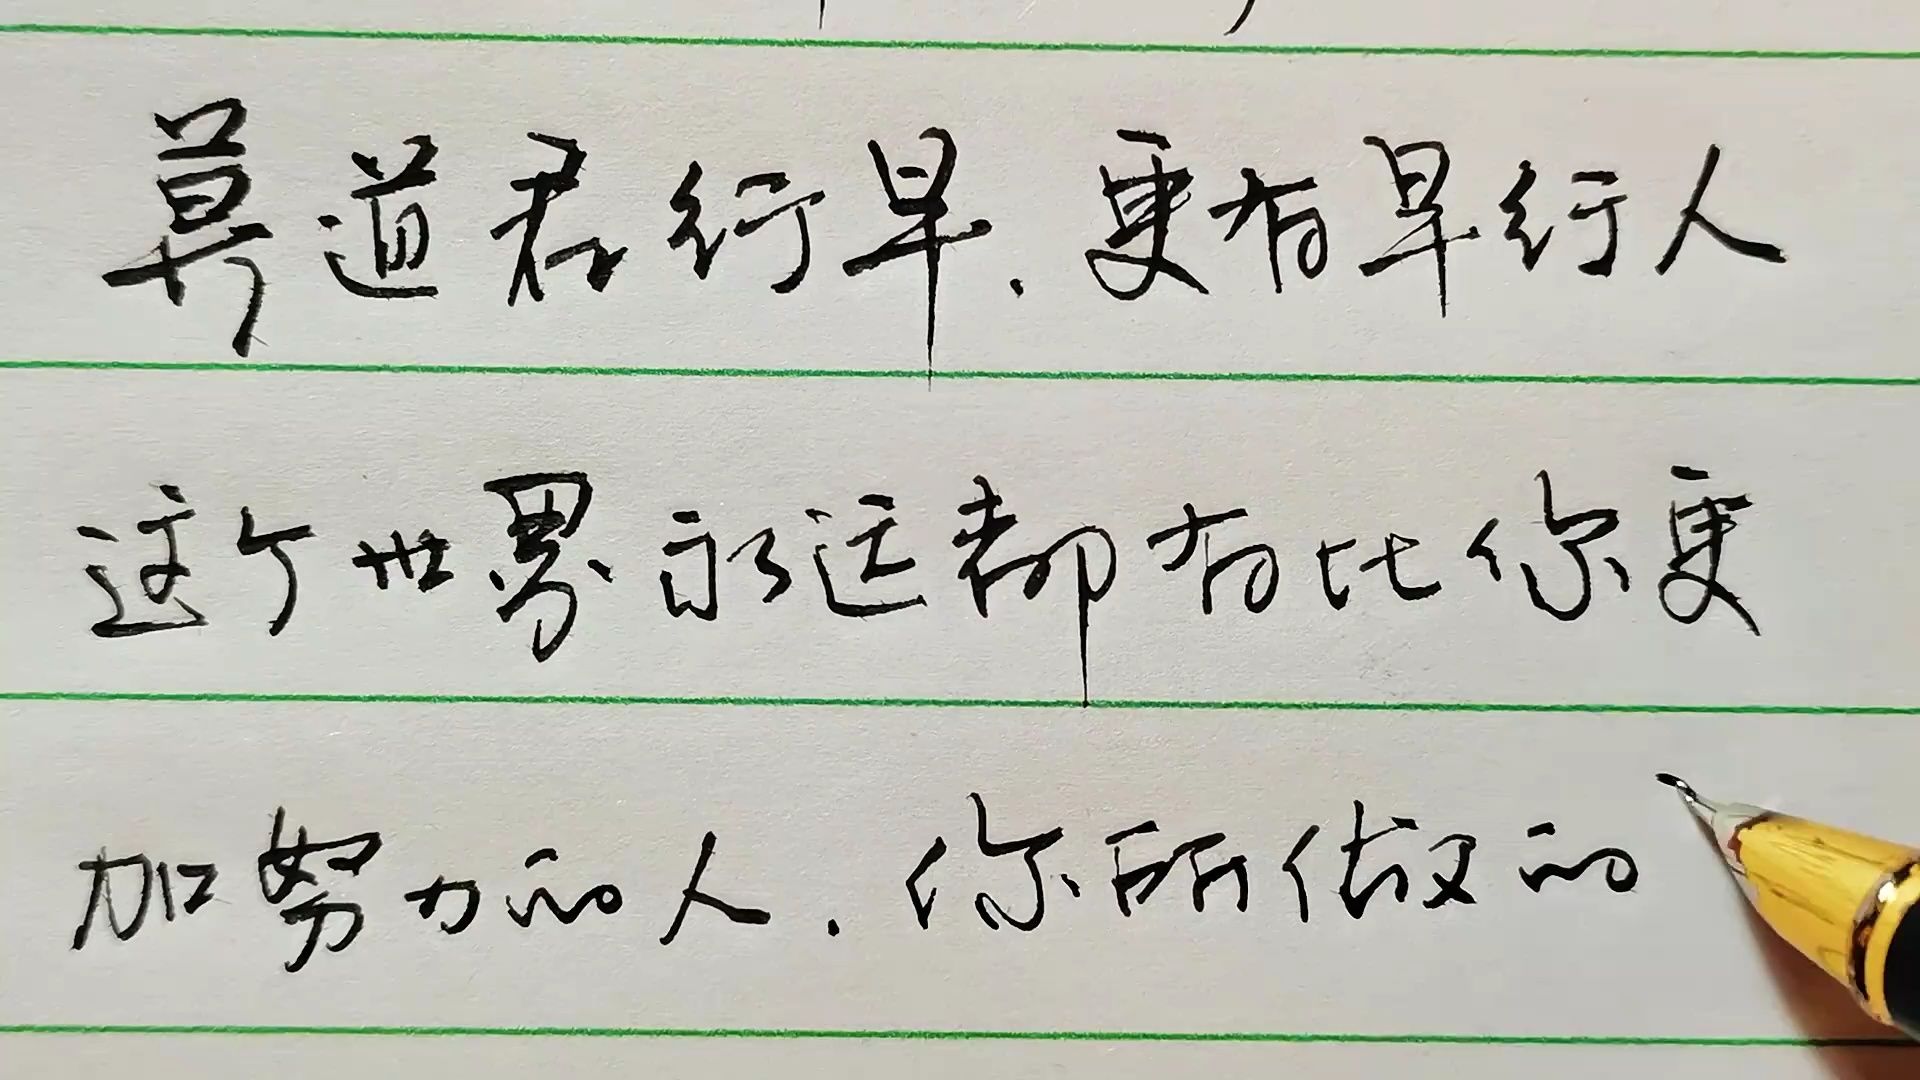 莫道君行早.更有早行人
这个世界永远都有比你更
加努力的人.你所做的